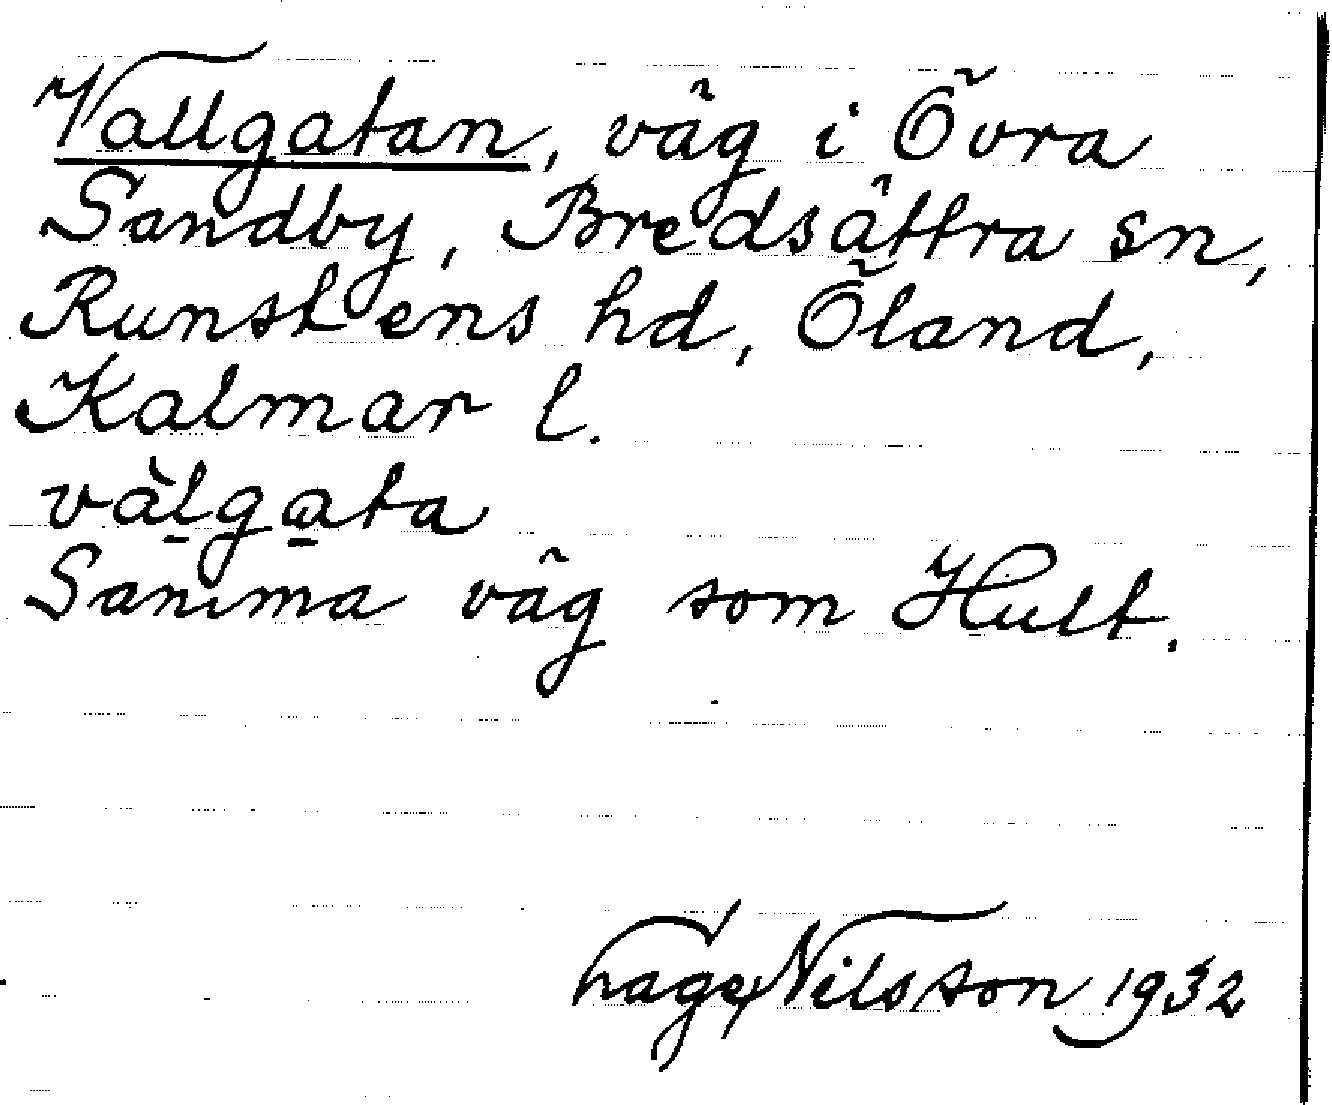 Vallgatan, väg i Övra
Sandby, Bredsättra sn,
Runstens hd, Öland,
Kalmar l.
vàl̠ga̠ta
Samma väg som Hult.
Hage Nilsson 1932